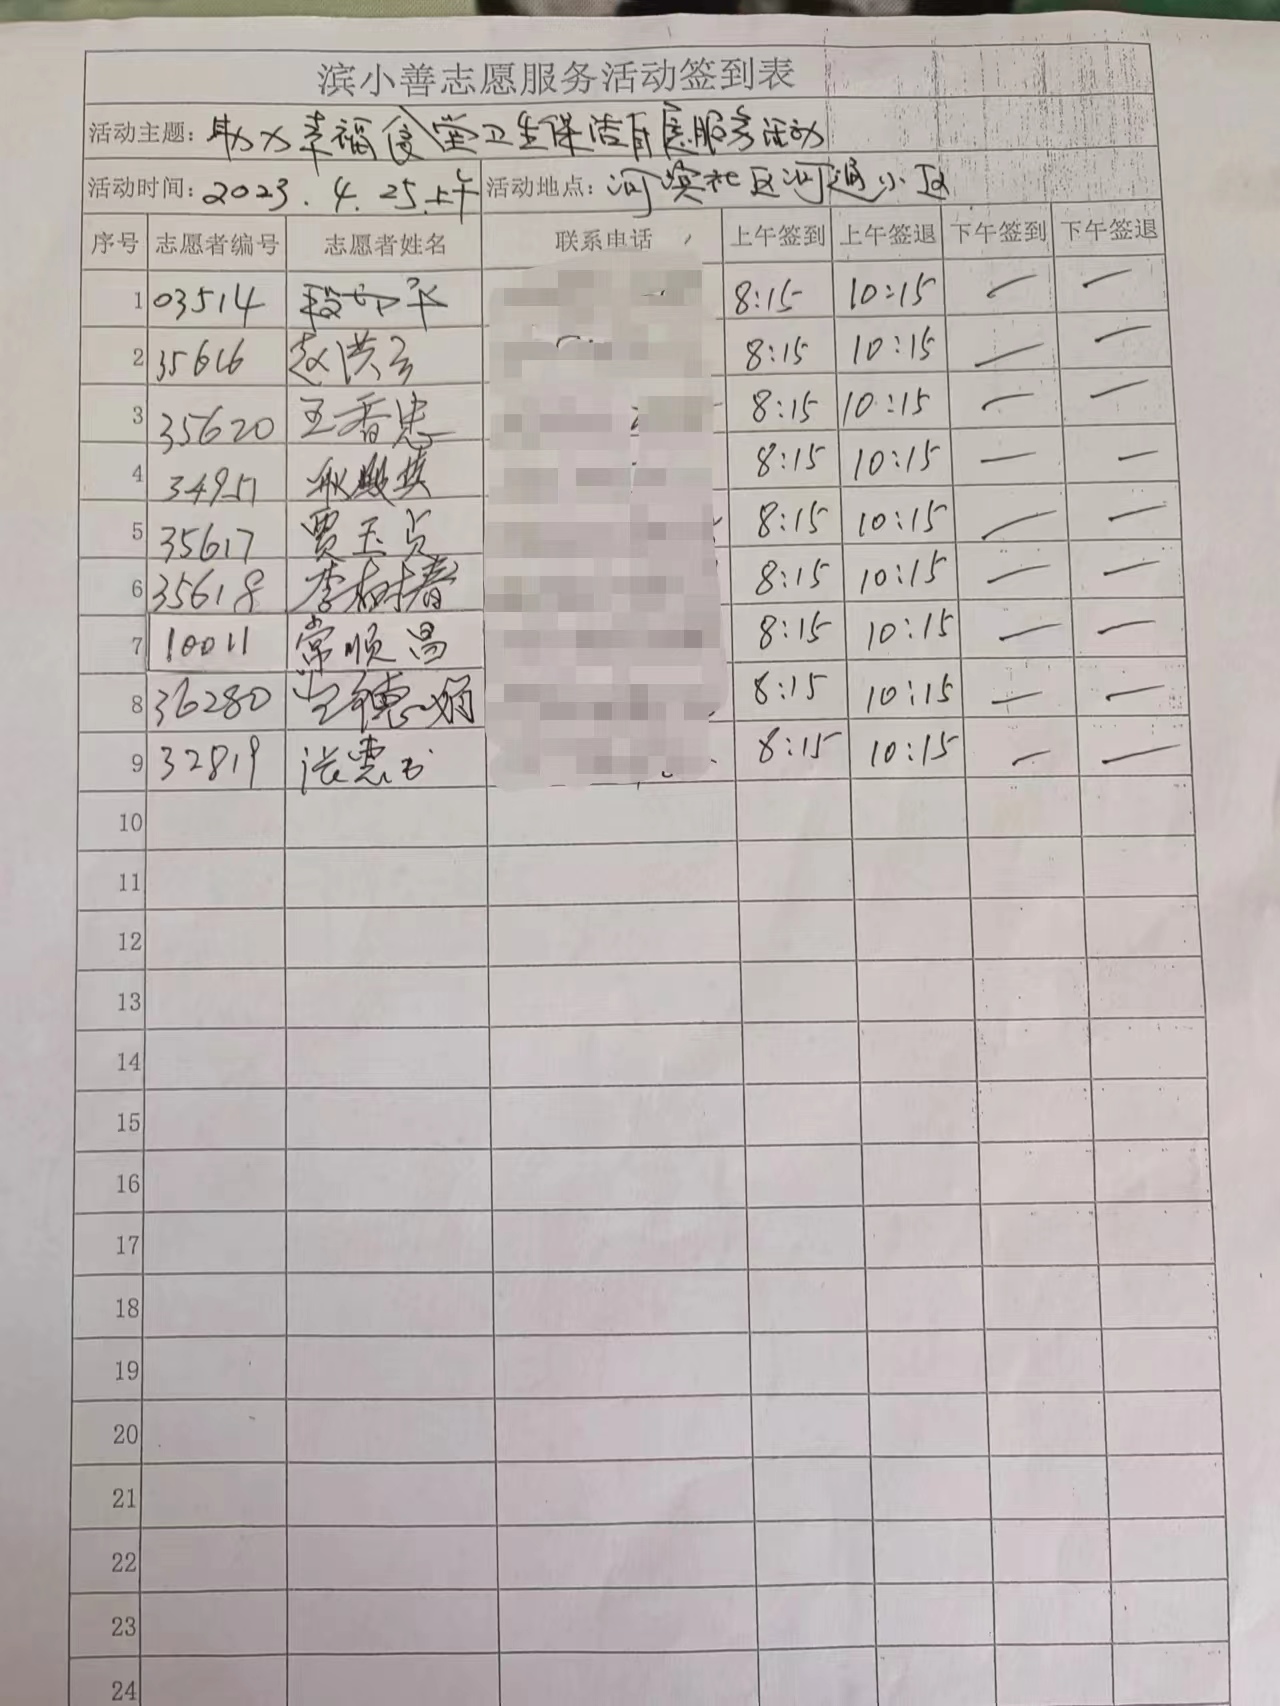 滨小善志愿服务活动签到表
活动主题: 助力幸福食堂卫生保洁自愿服务活动
活动时间: 2023.4.25.上午 活动地点: 河滨社区河通小区
序号 志愿者编号 志愿者姓名 联系电话 上午签到 上午签退 下午签到 下午签退
1 03514 8:15 10:15 — —
2 35616 赵洪云 8:15 10:15 — —
3 35620 王香忠 8:15 10:15 — —
4 8:15 10:15 — —
5 35617 贾玉贞 8:15 10:15 — —
6 35618 李树春 8:15 10:15 — —
7 10011 常顺昌 8:15 10:15 — —
8 36280 8:15 10:15 — —
9 32819 8:15 10:15 — —
10
11
12
13
14
15
16
17
18
19
20
21
22
23
24